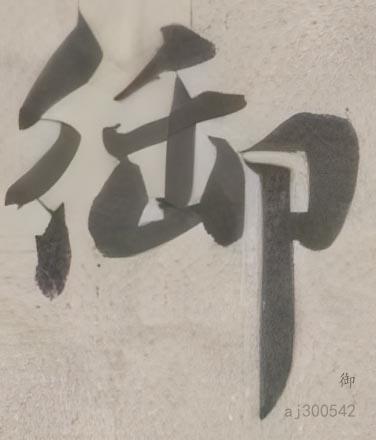 御
御
aj300542